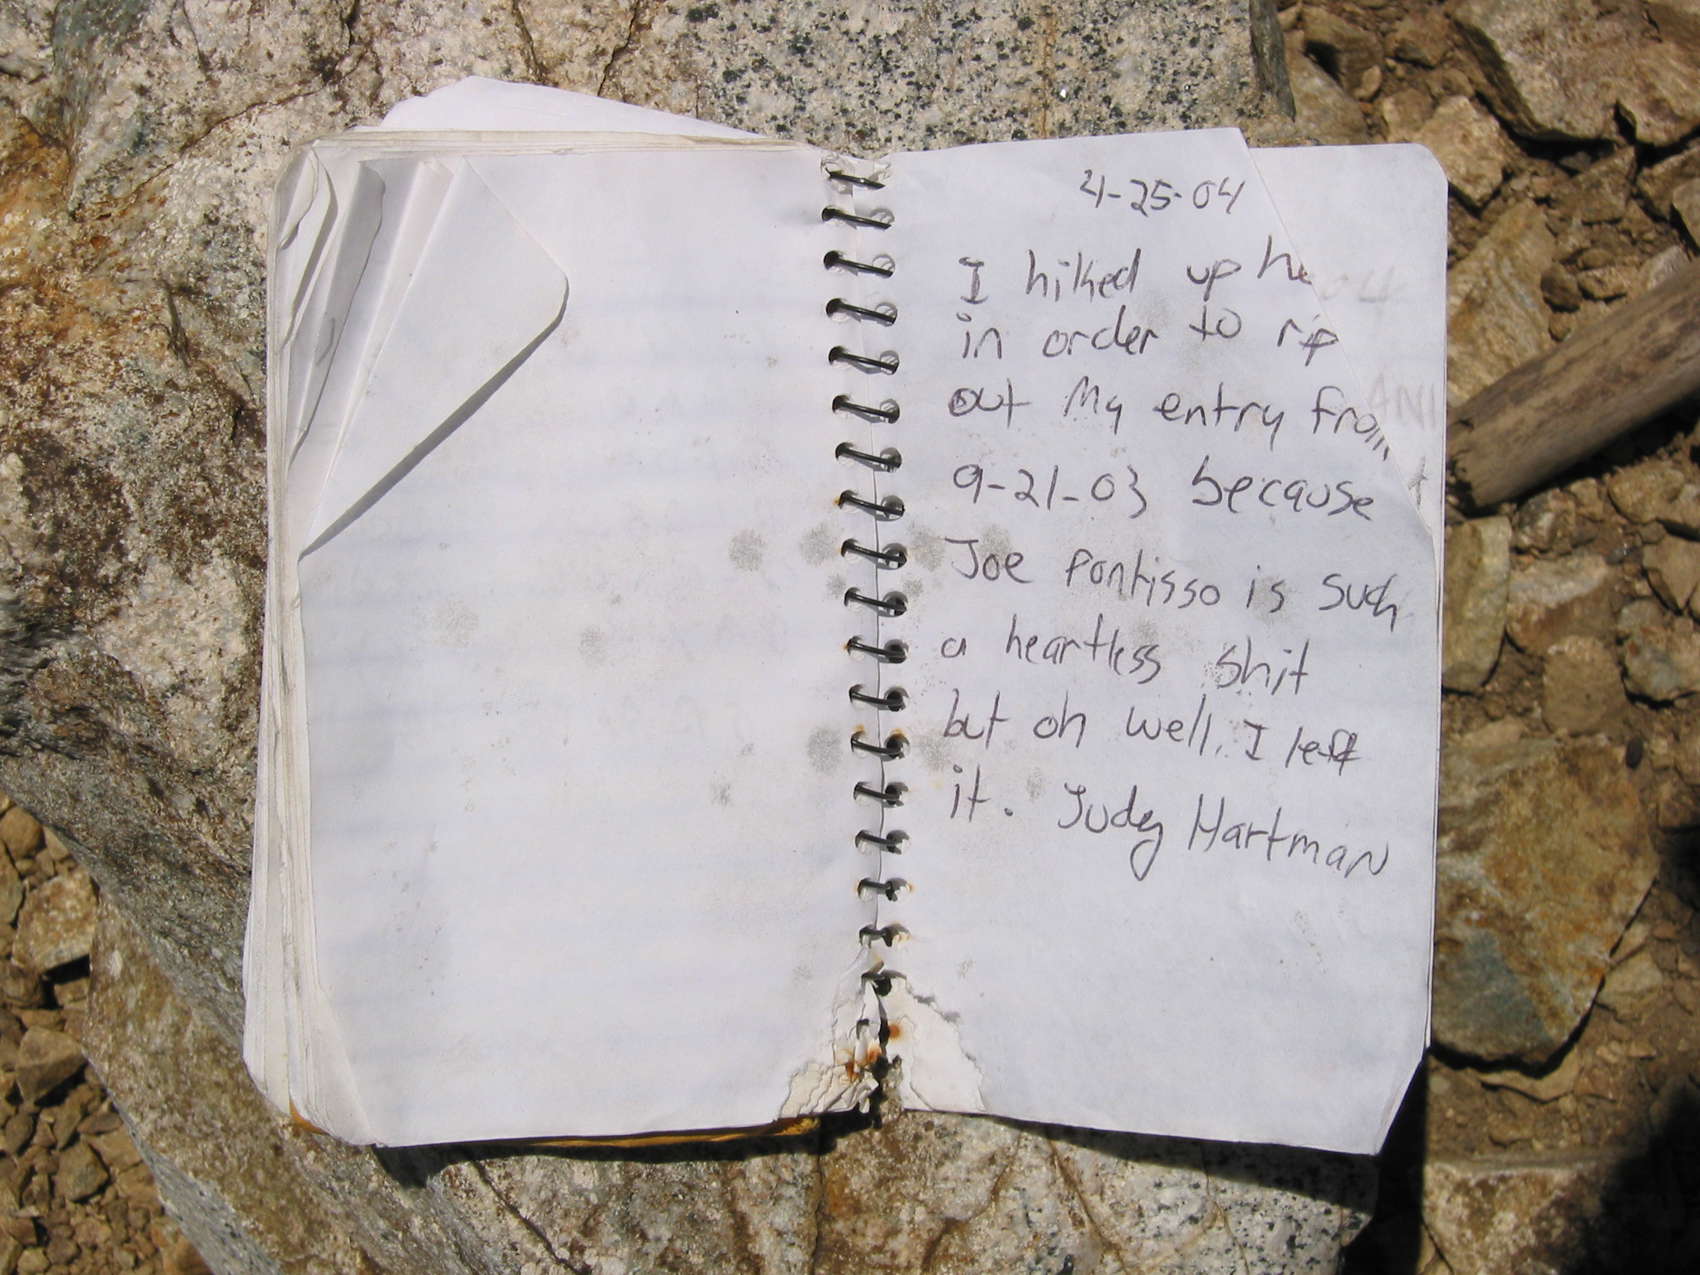 4-25-04
I hiked up he
in order to rip
out My entry from
9-21-03 because
Joe Pontisso is such
a heartless shit
but oh well. I left
it. Judy Hartman
ANI